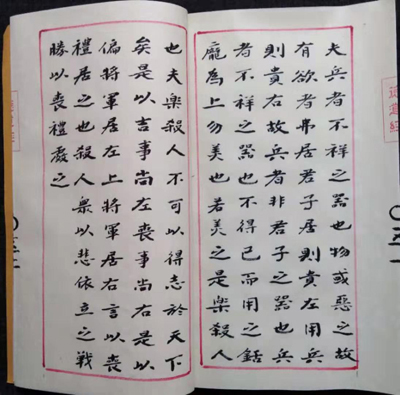 夫兵者不祥之器也物或惡之故
有欲者弗居君子居則貴左用兵
則貴右故兵者非君子之器也兵
者不祥之器也不得已而用之銛
龐為上勿美也若美之是樂殺人
也夫樂殺人不可以得志於天下
矣是以吉事尚左喪事尚右是以
偏將軍居左上將軍居右言以喪
禮居之也殺人衆以悲依立之戰
勝以喪禮處之